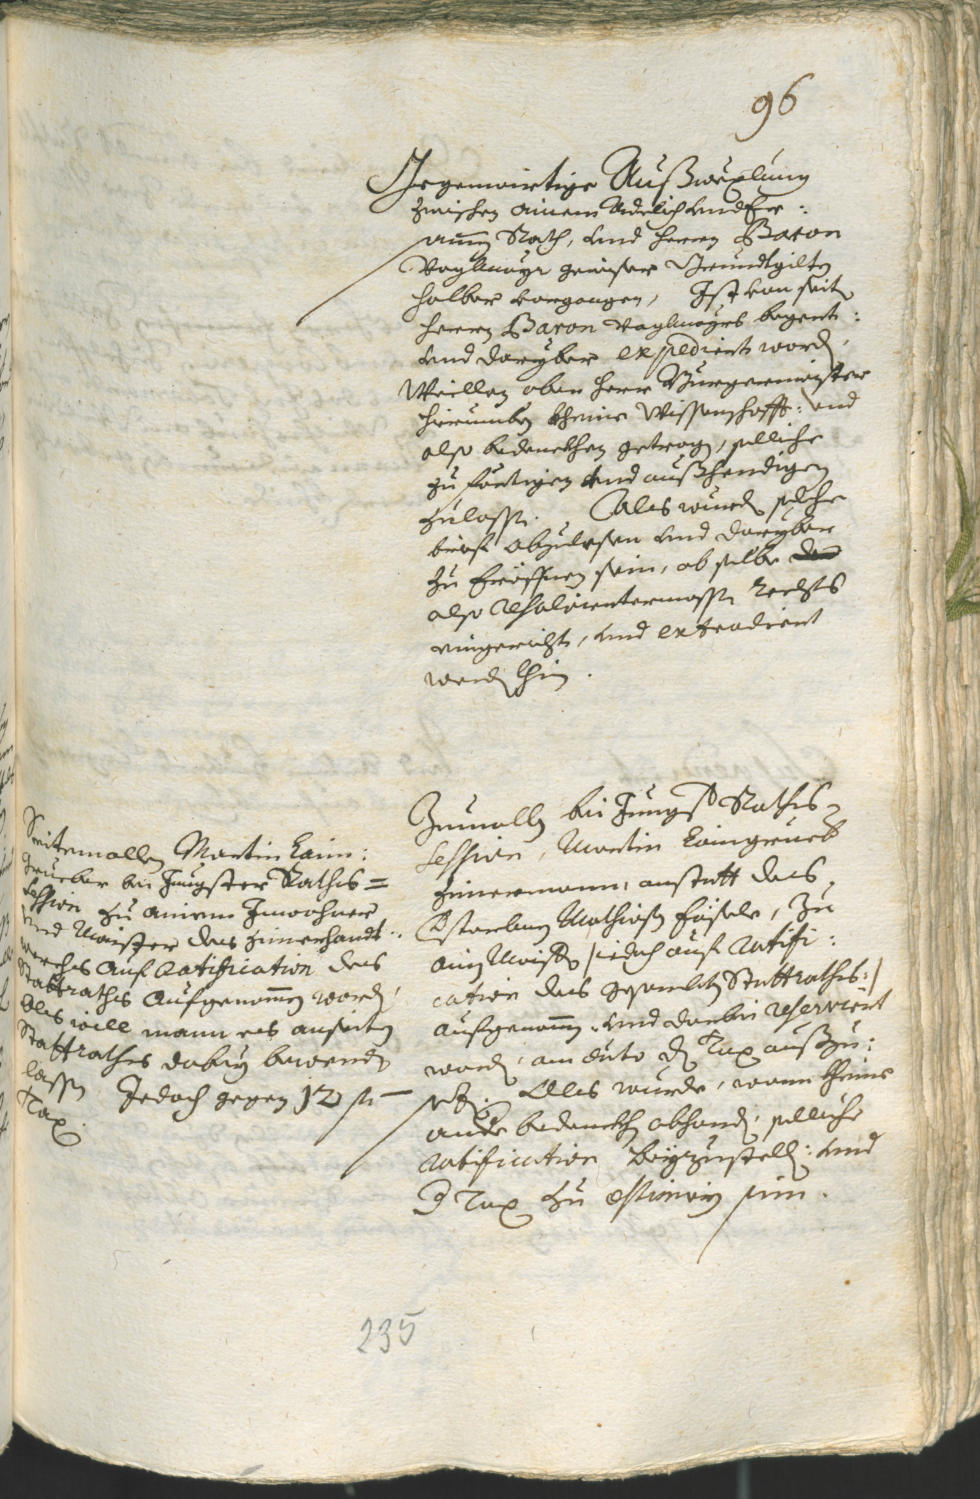 96
Gegenwirtige Außwexlung
zwischen ainem Adelich und Er:
samen Rath, und herrn Baron
Voglmayr gewiser Grundtgilten
halber vorgangen, Ist von seiten
herrn Baron Voglmayrs begert:
und daryber expediert worden,
Weillen aber herr Burgermaister
hierumben kheine Wissenschafft: und
also bedenckhen getragen, solliche
zu förtigen und außhendigen
zulassen. Als wurdet solche
brief abzulesen und daryber
zu Eröffnen sein, ob selbe
also rechts
eingericht, und extradiert
werden khin.
Zumallen bei Jüngster Raths-
session, Martin Laingrueb
Zimermann, anstatt des
Verstorbenen Mathiasen, zu
ain Maister /: iedoch auf Ratifi:
cation des gesambten Stattraths:/
aufgenomen, und darbei reserviert
worden, ain die Tax außzu:
sezen. Als wurde, wann kheine
andere bedenckhen obhanden, solliche
ratification beyzustellen: und
die Tax zu sein.
Seitemallen Martin Lain:
grueber bei Jüngster Raths=
session zu ainem Inwohner
und Maister des Zimerhandt:
werchs auf Ratification des
Stattraths aufgenomen worden,
Als will mann es anseiten
Stattraths dabey bewenden
lassen Jedoch gegen 12 fl
Tax.
235